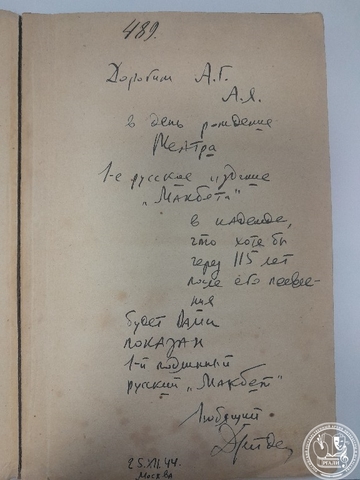 489.
Дорогим А.Г.
А.Я.
в день рождения
Театра
1-е русское издание
"Макбета"
в надежде,
что хотя бы
через 115 лет
после его появле-
ния
будет Вами
показан
1-й подлинный
русский "Макбет"
Любящий
25.XII.44.
Москва
РГАЛИ